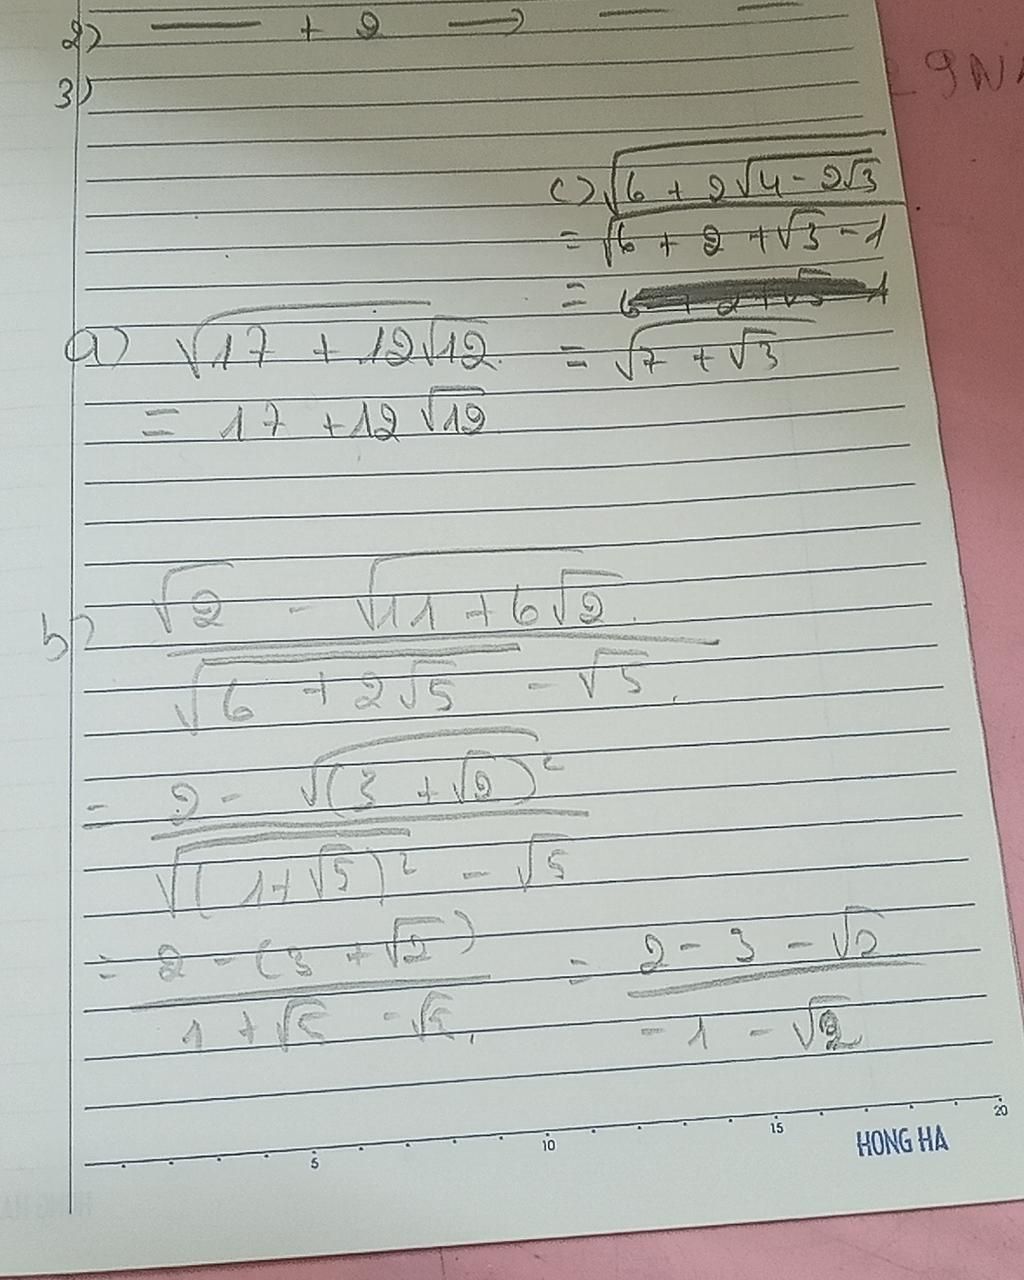 2) — + 2 → — —
3)
29N
c) √(6 + 2√(4 - 2√3))
= √(6 + 2 + √3 - 1)
= 6 + 2 + √3 - 1
= √(7 + √3)
a) √(17 + 12√12)
= 17 + 12√12
b) (√2 - √(11 + 6√2)) / (√(6 + 2√5) - √5)
= (2 - √((3 + √2)²)) / (√((1 + √5)²) - √5)
= (2 - (3 + √2)) / (1 + √5 - √5) = (2 - 3 - √2) / (-1 - √2)
5 10 15 20
HONG HA